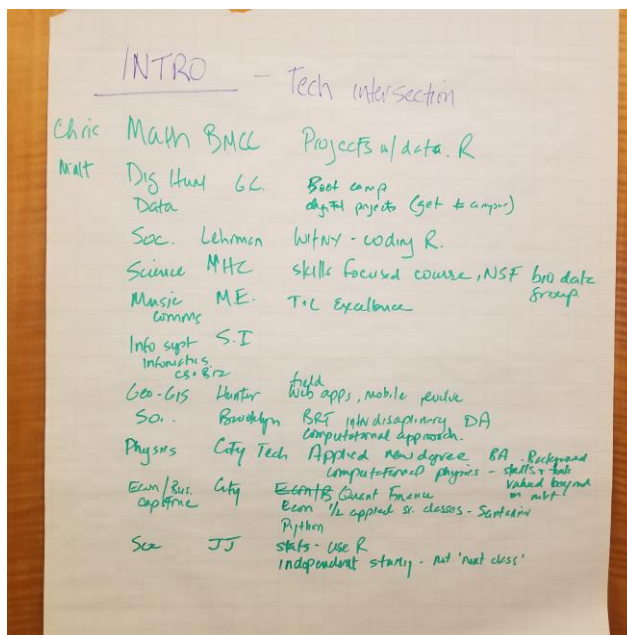 INTRO - Tech intersection
Chric Math BMCC Projects w/ data. R
Matt Dig Hum GC. Boot camp
Data digital projects (get to campus)
Soc. Lehman WitNY - coding R.
Science MHC skills focused course, NSF bio data
group
Music M.E. T+L Excellence
comms
Info syst S.I
Informatics
CS + Biz
field
Geo-GIS Hunter Web apps, mobile evolve
So.. Brooklyn interdisciplinary DA
computational approach.
Physics City Tech Applied new degree BA. Background
computational physics - skills + tools
valued beyond
Econ/Bus. City Quant Finance
capstone Econ 1/2 applied sr. classes -
Python
JJ stats - use R
independent study - not 'next class'